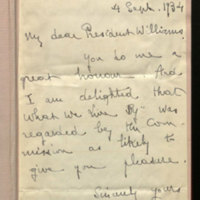 4 Sept. 1934
My dear President Williams,
You do me a
great honour. And
I am delighted that
"What We Live By" was
regarded by the Com-
mission as likely to
give you pleasure.
Sincerely yours